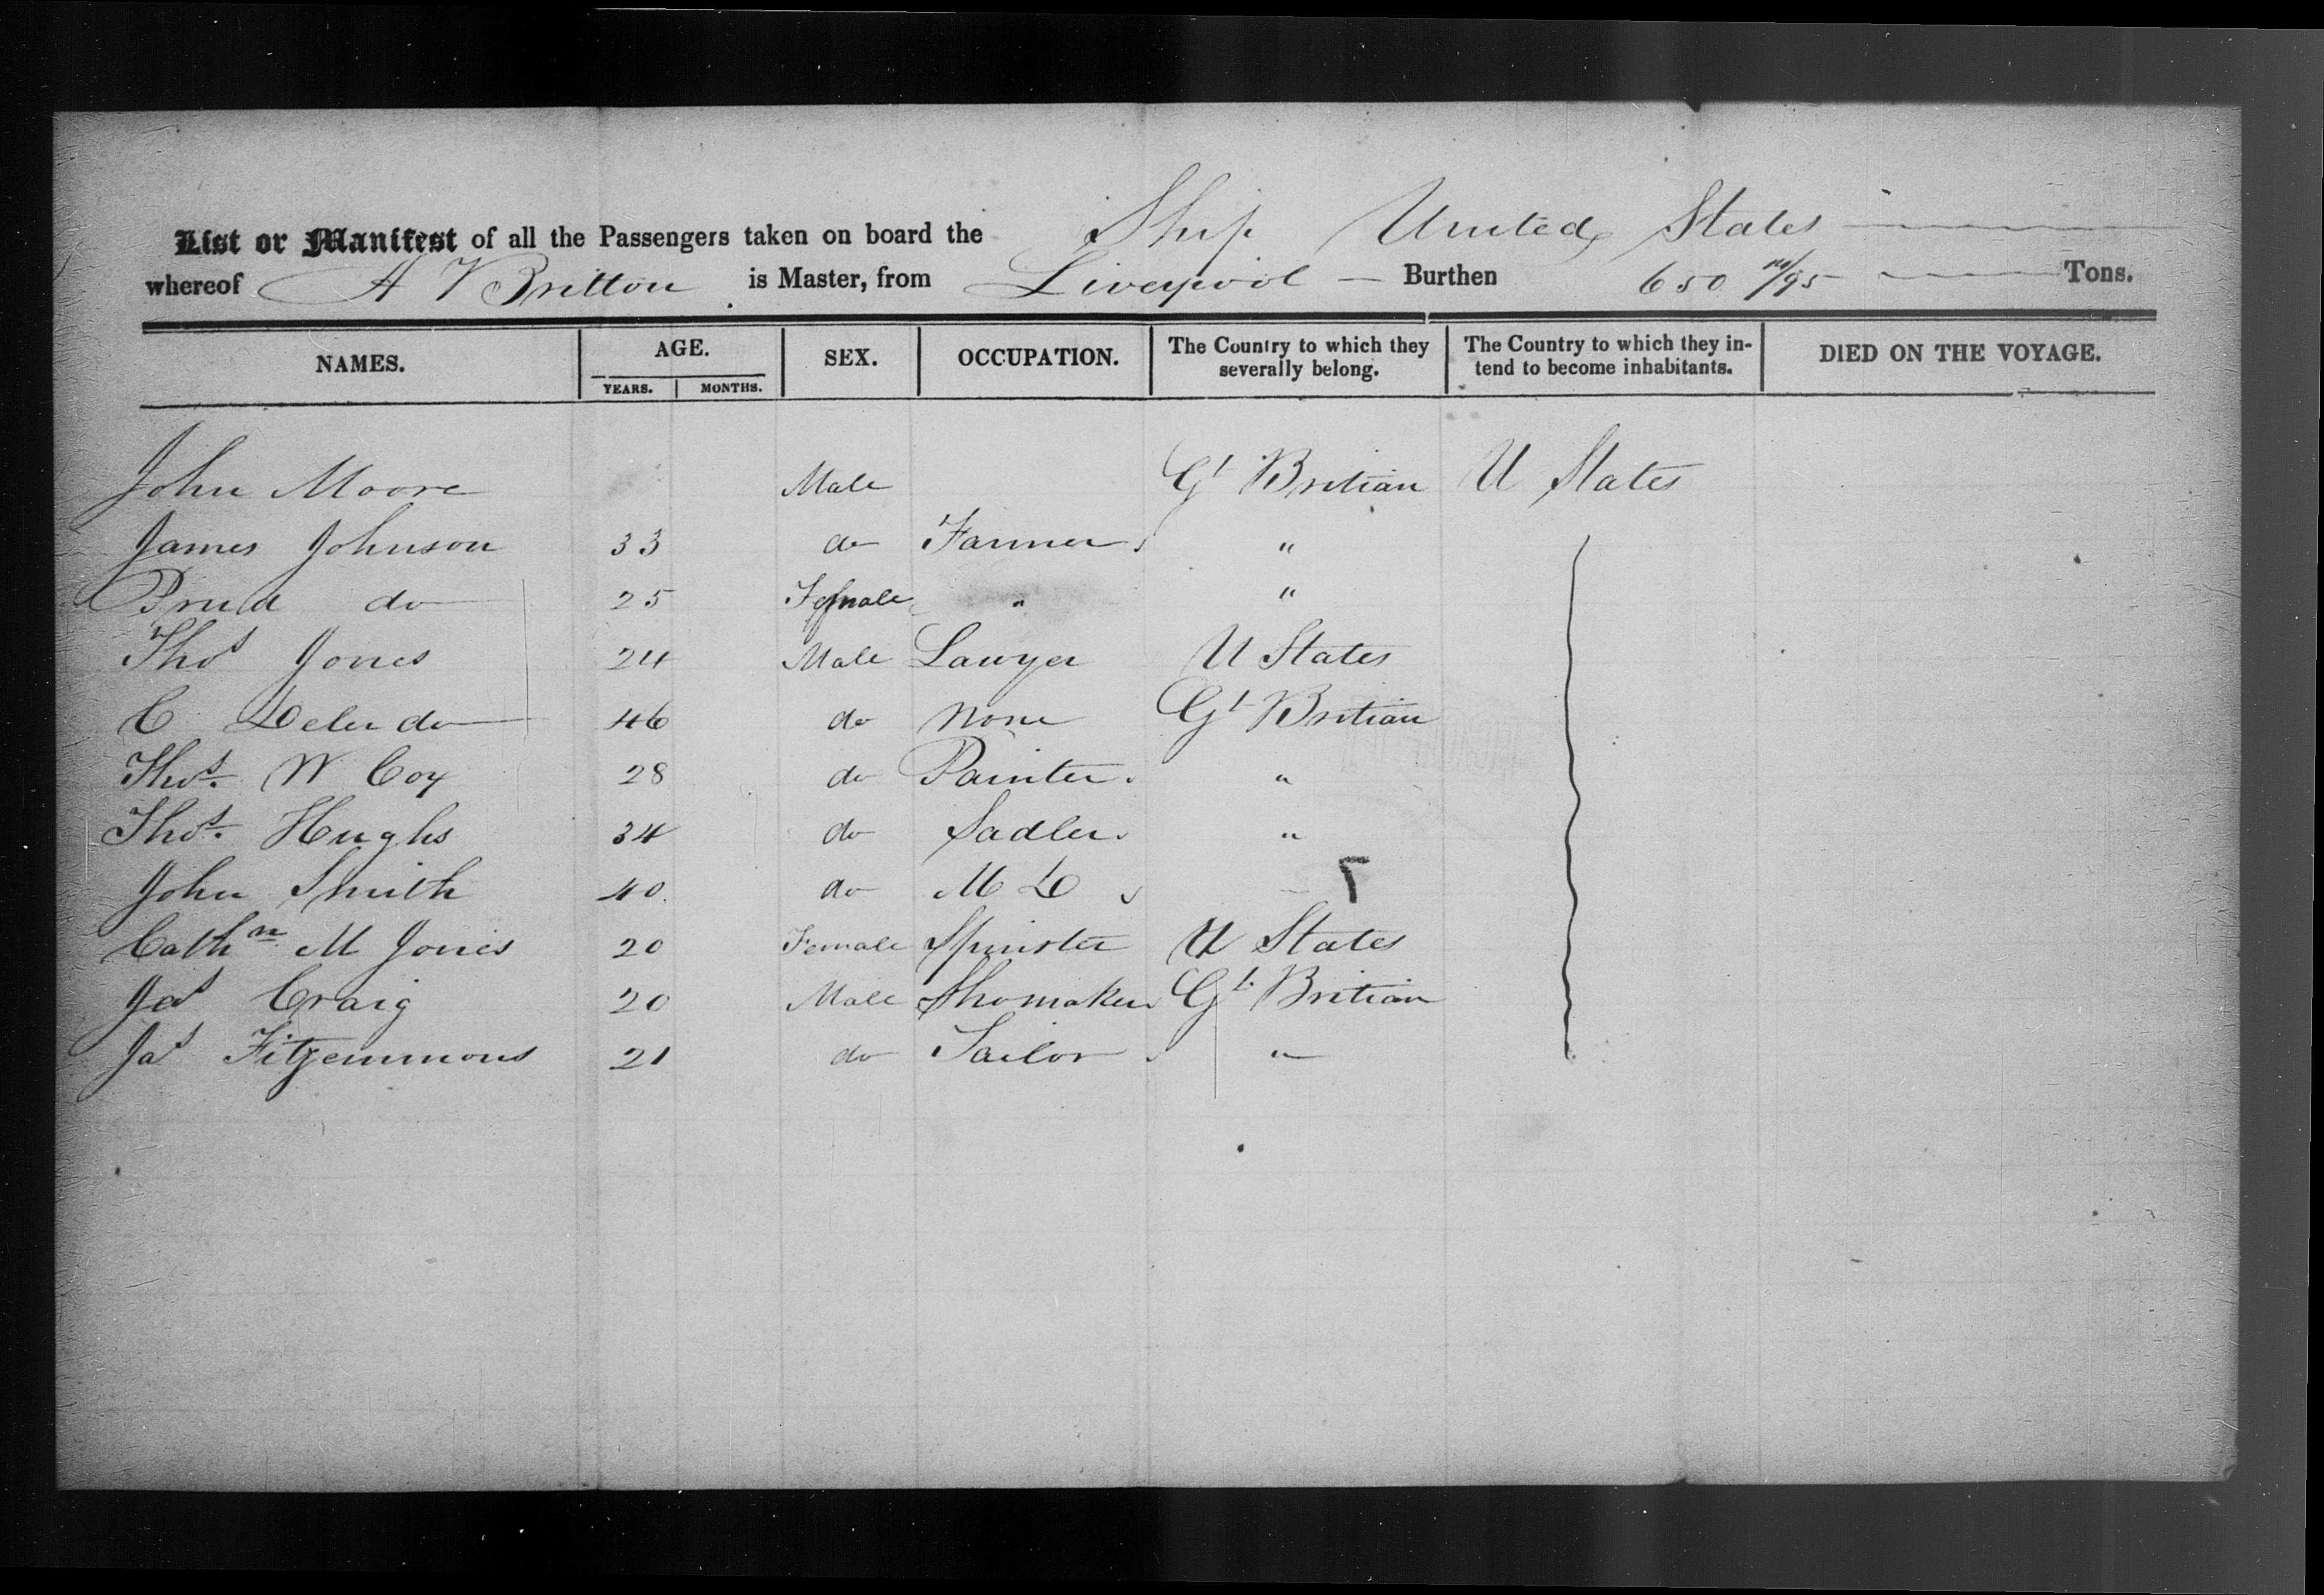 List or Manifest of all the Passengers taken on board the Ship United States
whereof A V Britton is Master, from Liverpool — Burthen 650 /95 Tons.
NAMES. AGE. SEX. OCCUPATION. The Country to which they severally belong. The Country to which they intend to become inhabitants. DIED ON THE VOYAGE.
YEARS. MONTHS.
John Moore Male Gt Britian U States
James Johnson 33 do Farmer "
do 25 Female " "
Thos Jones 24 Male Lawyer U States
C do 46 do None Gt Britian
Thos. W Coy 28 do Painter "
Thos. Hughs 34 do Sadler "
John Smith 40 do M D
Cathn M Jones 20 Female Spinster U States
Jas Craig 20 Male Shomaker Gt. Britian
Jas Fitzemmons 21 do Sailor "